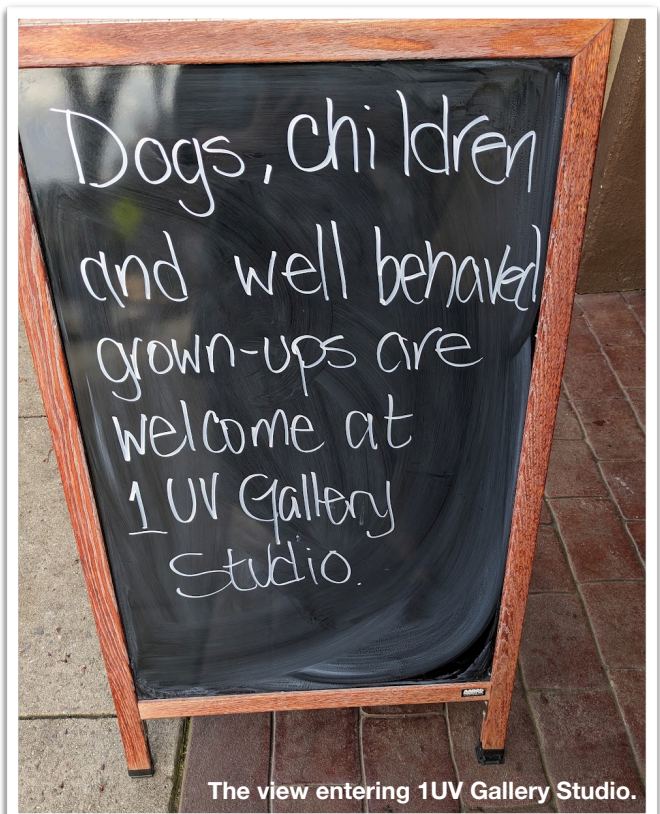 Dogs, children
and well behaved
grown-ups are
welcome at
1UV Gallery
Studio.
The view entering 1UV Gallery Studio.